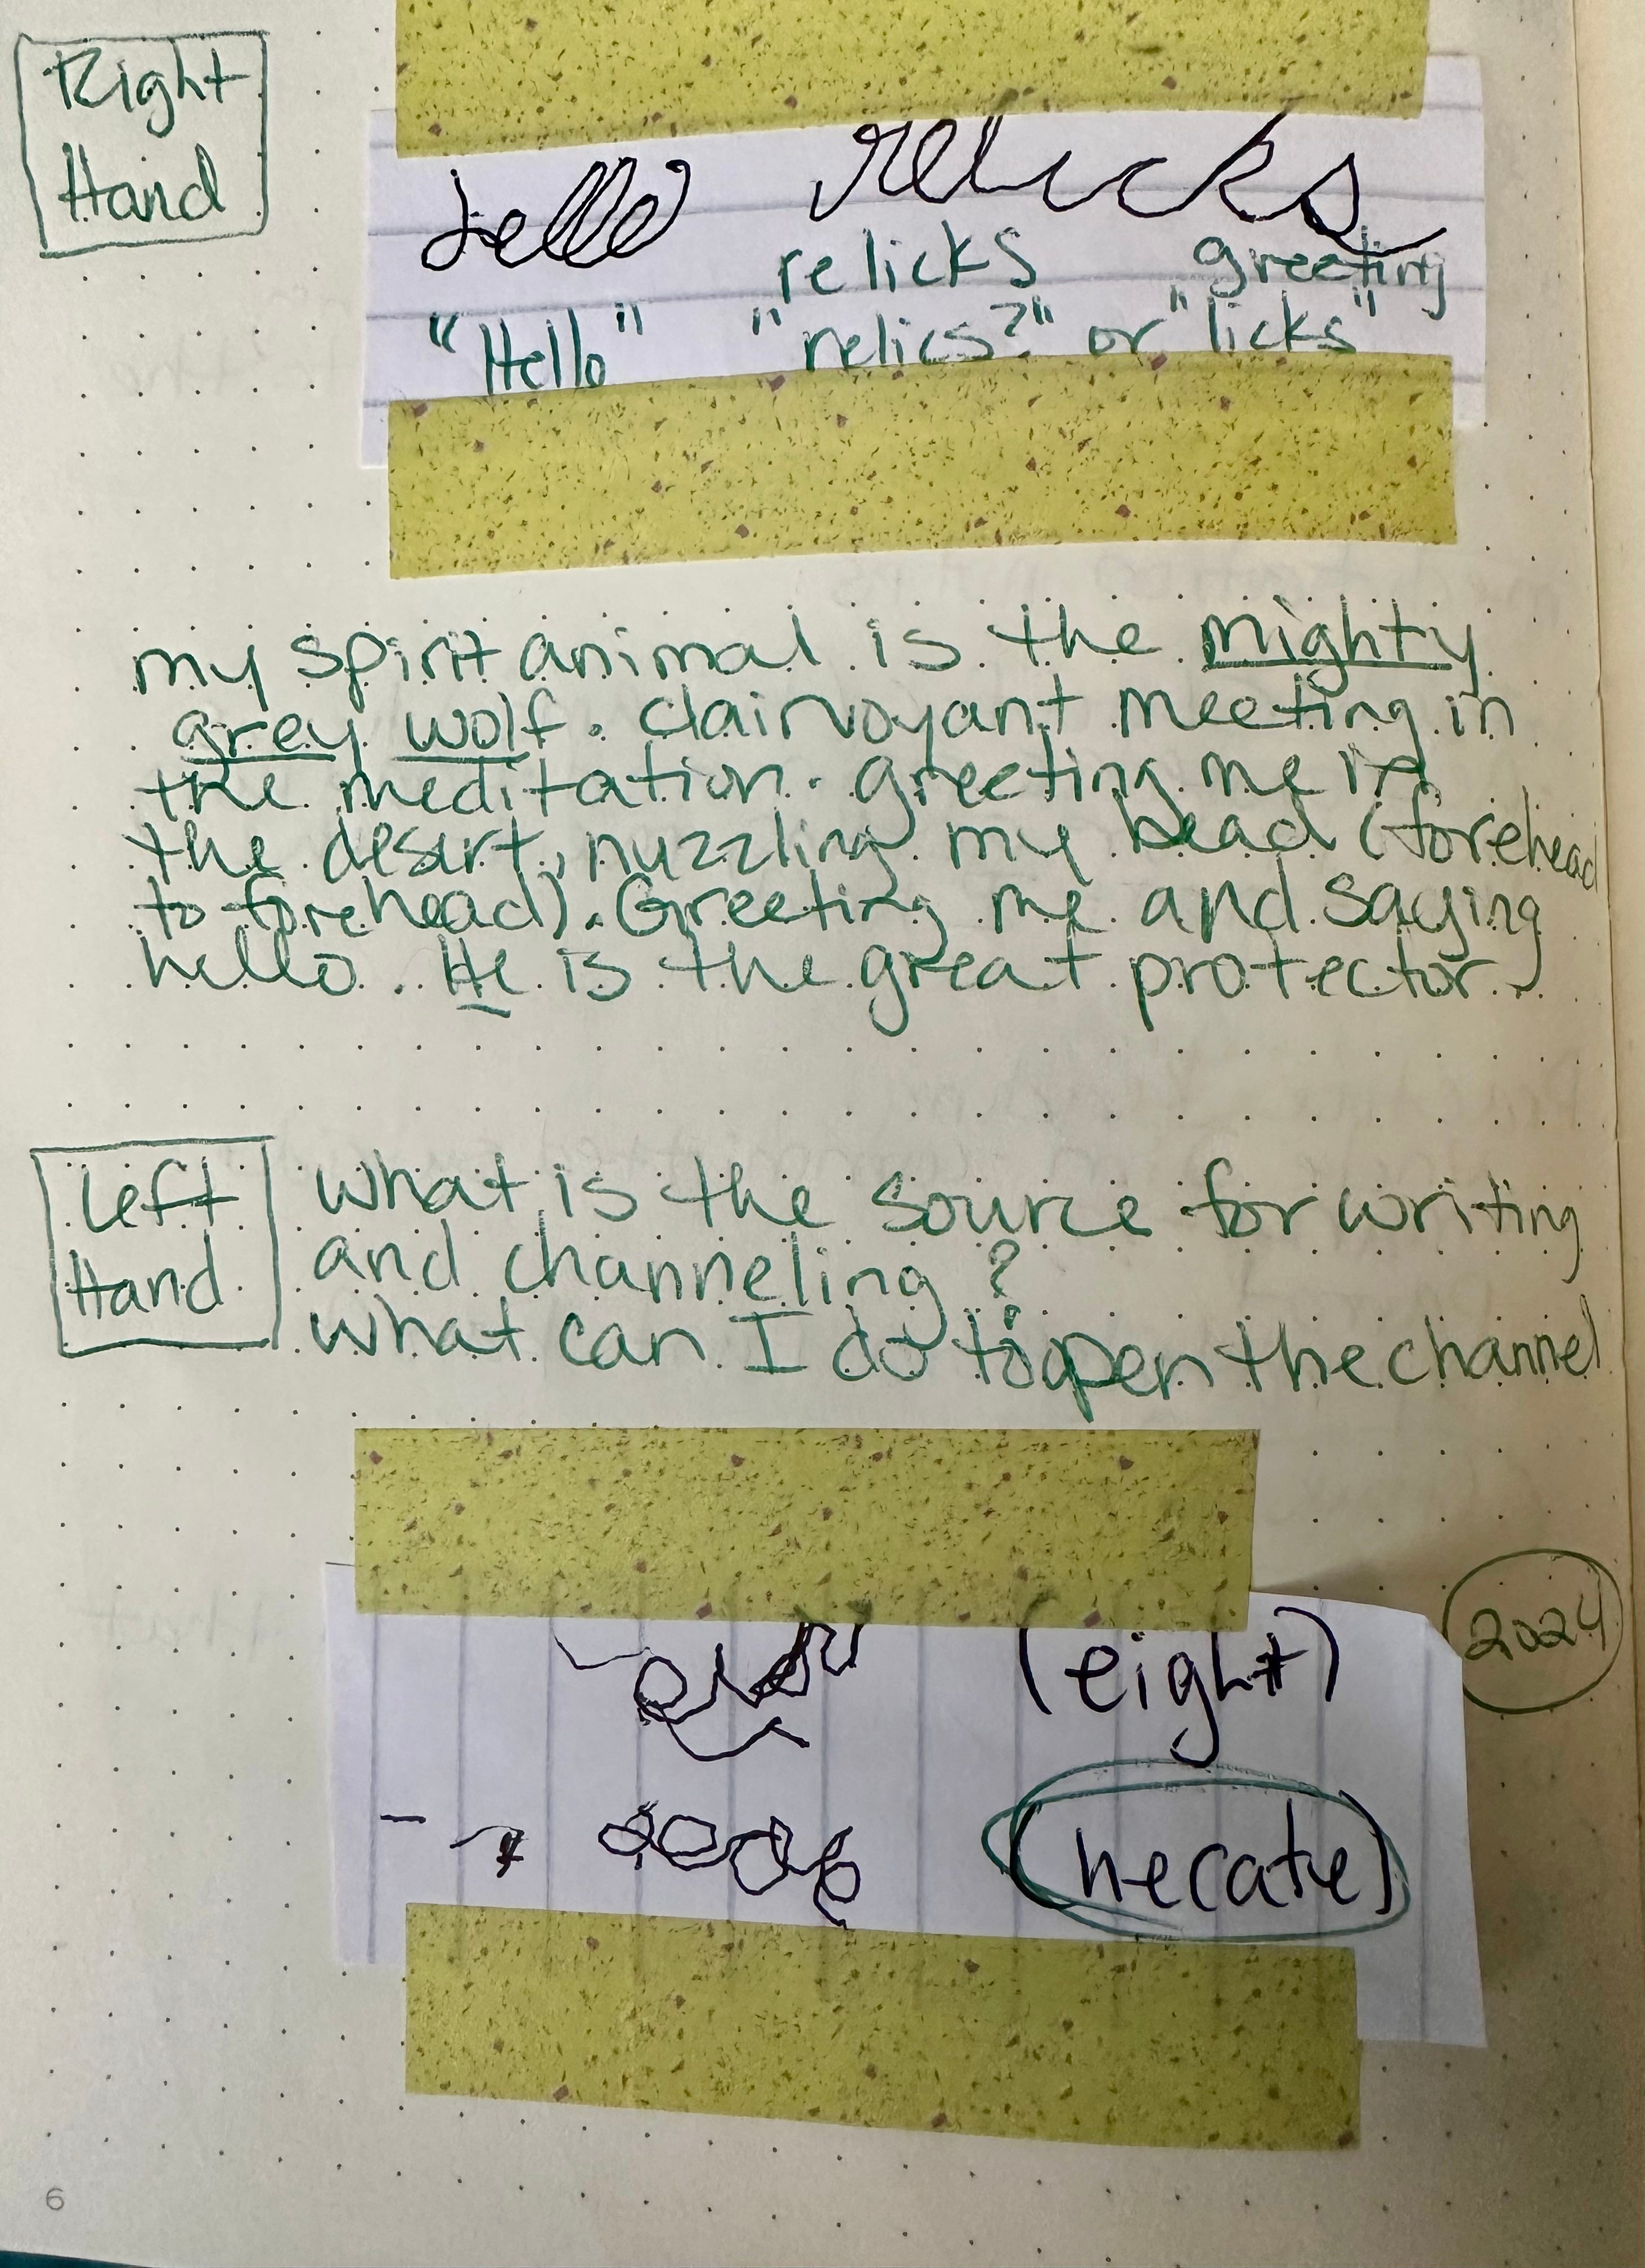 Right
Hand
Hello relicks
relicks greeting
"Hello" "relics?" or "licks"
my spirit animal is the mighty
grey wolf. clairvoyant meeting in
the meditation. Greeting me in
the desert, nuzzling my head (forehead
to forehead). Greeting me and saying
hello. He is the great protector.
Left
Hand
what is the source for writing
and channeling?
what can I do to open the channel
(eight)
2024
(hecate)
6